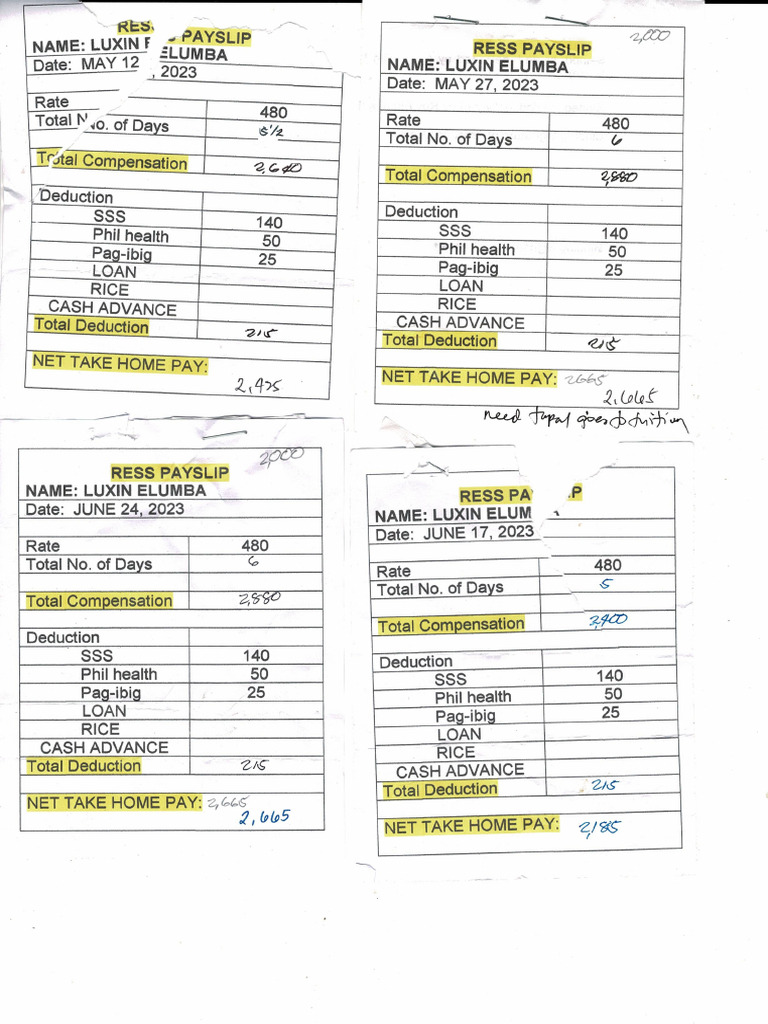 RESS PAYSLIP
NAME: LUXIN ELUMBA
Date: MAY 12, 2023
Rate 480
Total No. of Days 5 1/2
Total Compensation 2,640
Deduction
SSS 140
Phil health 50
Pag-ibig 25
LOAN
RICE
CASH ADVANCE
Total Deduction 215
NET TAKE HOME PAY:
2,425
2,000
RESS PAYSLIP
NAME: LUXIN ELUMBA
Date: MAY 27, 2023
Rate 480
Total No. of Days 6
Total Compensation 2,880
Deduction
SSS 140
Phil health 50
Pag-ibig 25
LOAN
RICE
CASH ADVANCE
Total Deduction 215
NET TAKE HOME PAY: 2665
2,665
need goes to tuition
2,000
RESS PAYSLIP
NAME: LUXIN ELUMBA
Date: JUNE 24, 2023
Rate 480
Total No. of Days 6
Total Compensation 2,880
Deduction
SSS 140
Phil health 50
Pag-ibig 25
LOAN
RICE
CASH ADVANCE
Total Deduction 215
NET TAKE HOME PAY: 2,665
2,665
RESS PAYSLIP
NAME: LUXIN ELUM
Date: JUNE 17, 2023
Rate 480
Total No. of Days 5
Total Compensation 2,400
Deduction
SSS 140
Phil health 50
Pag-ibig 25
LOAN
RICE
CASH ADVANCE
Total Deduction 215
NET TAKE HOME PAY: 2,185